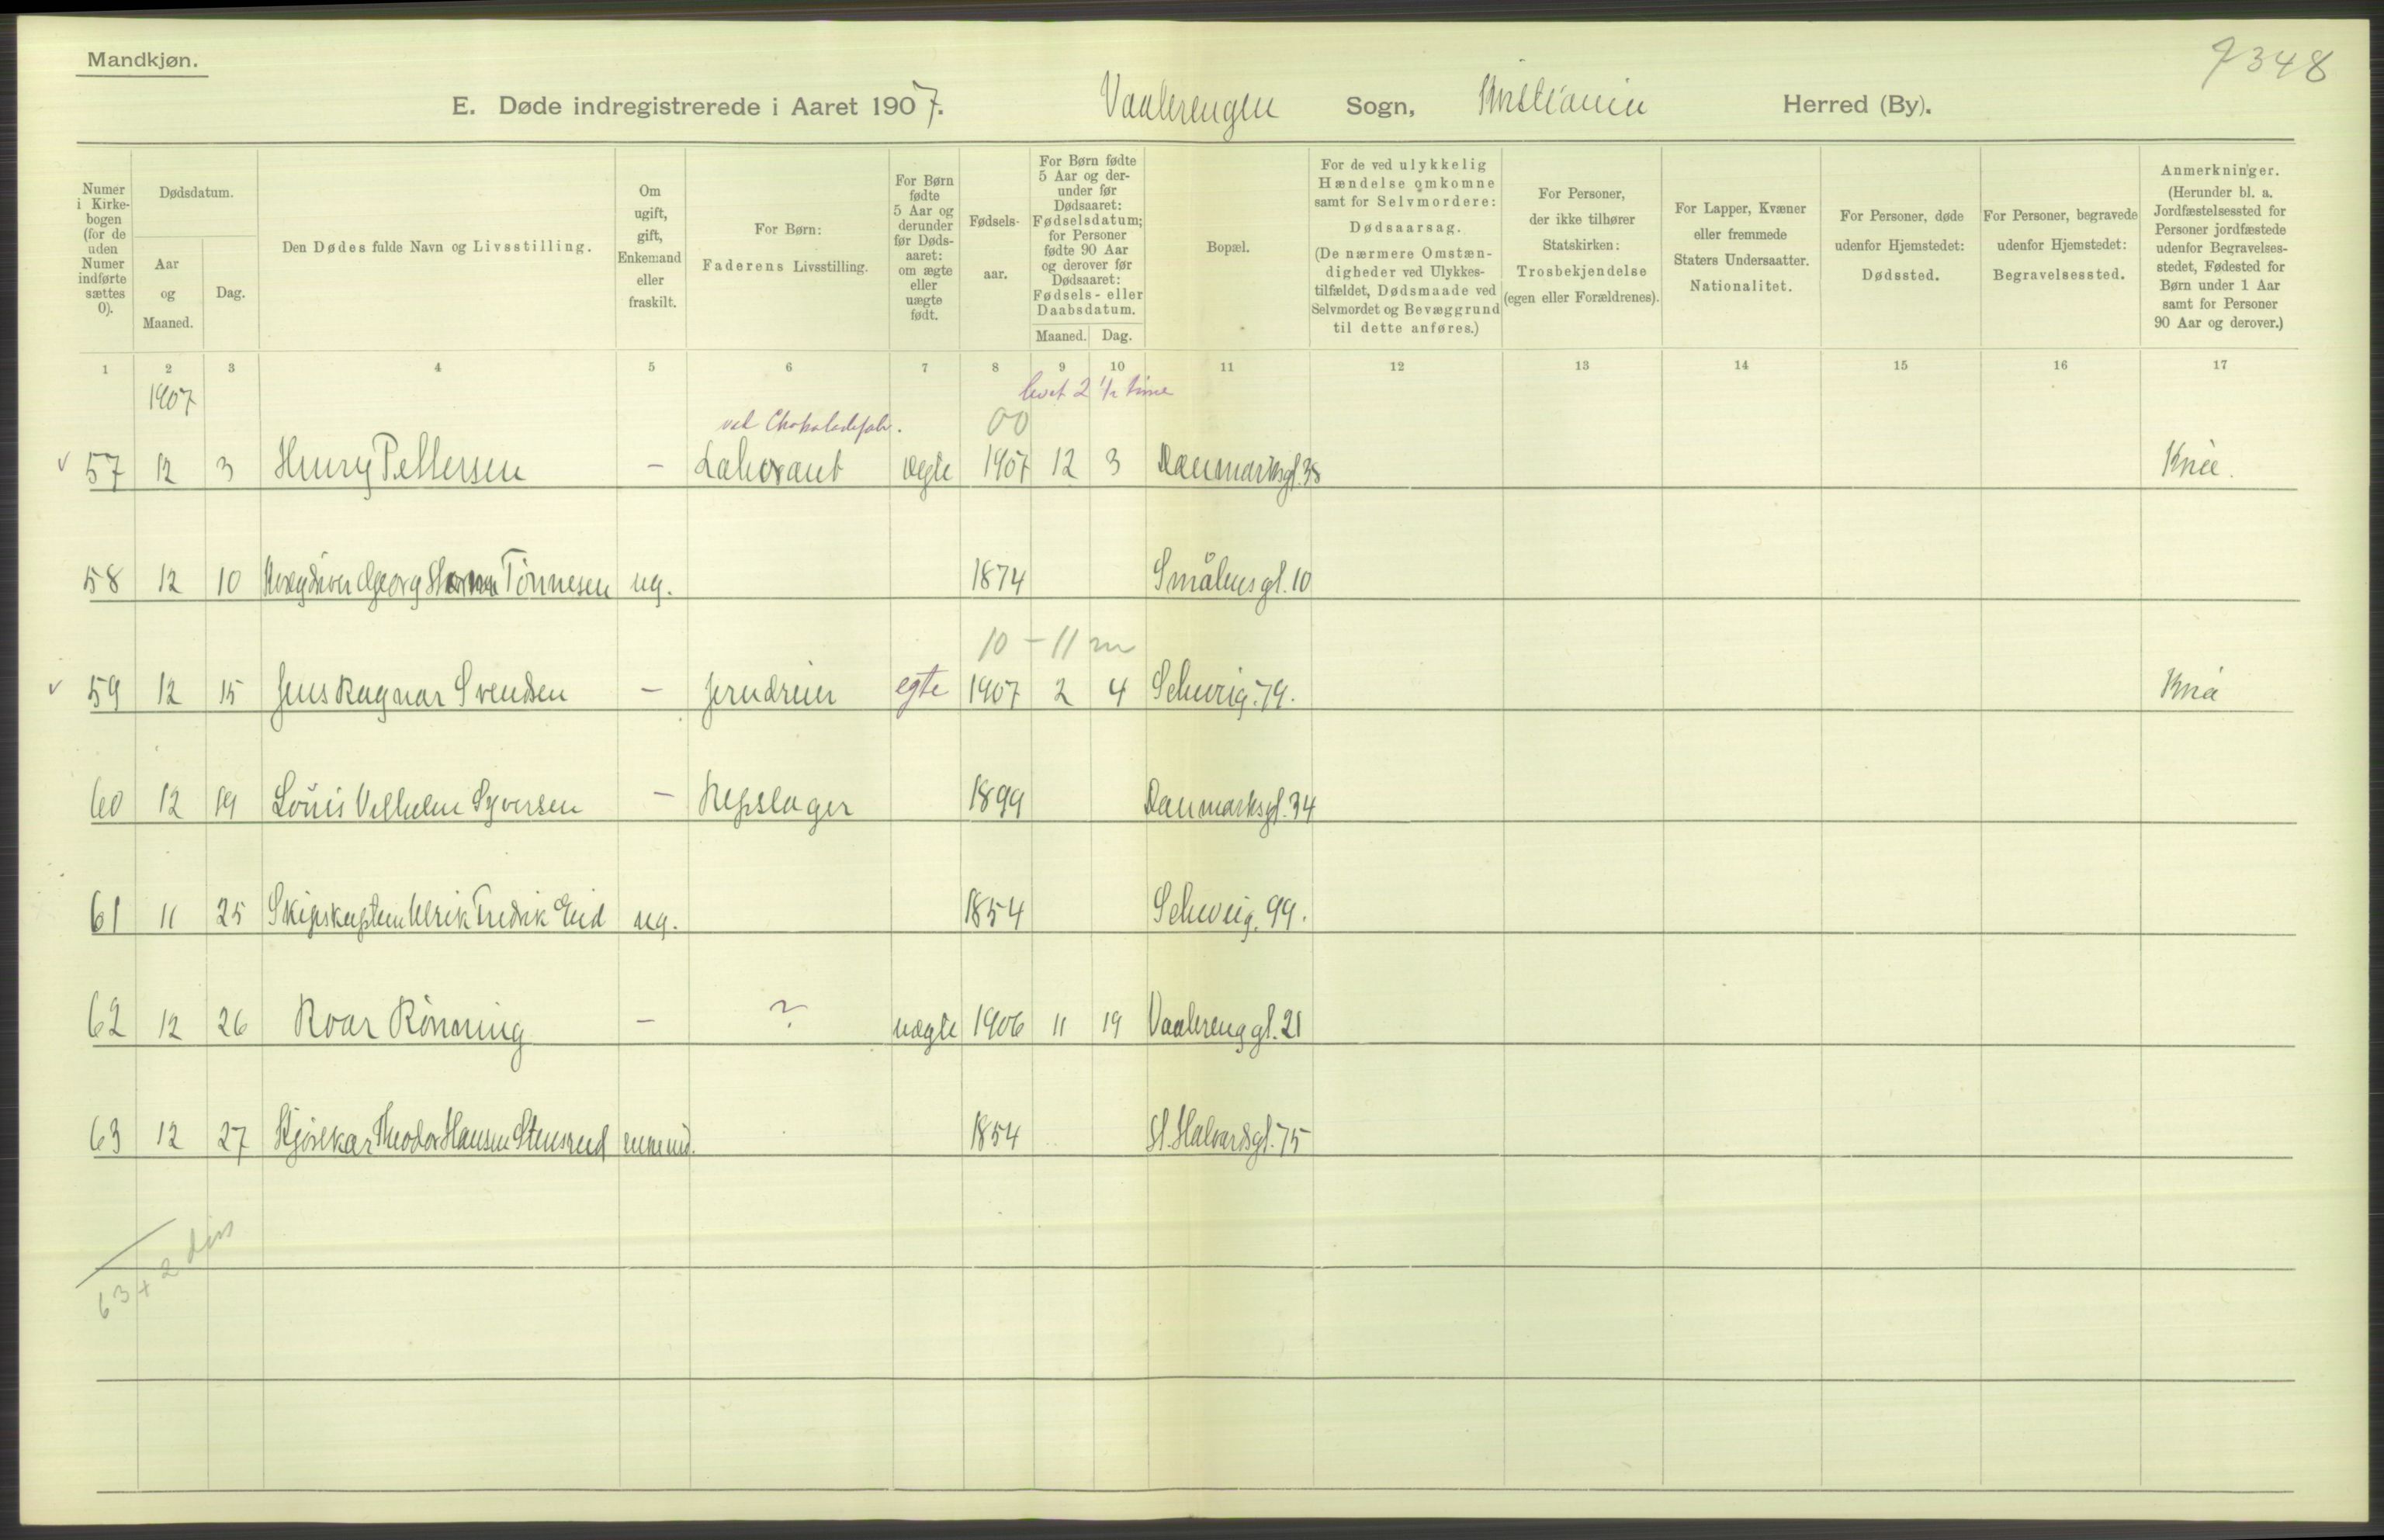 Mandkjøn.
7348
E. Døde indregistrerede i Aaret 1907. Vaalerengen Sogn, Kristiania Herred (By).
Numer i Kirkebogen (for de uden Numer indførte sættes 0).
Dødsdatum.
Aar og Maaned.
Dag.
Den Dødes fulde Navn og Livsstilling.
Om ugift, gift, Enkemand eller fraskilt.
For Børn: Faderens Livsstilling.
For Børn fødte 5 Aar og derunder før Dødsaaret: om ægte eller uægte født.
Fødselsaar.
For Børn fødte 5 Aar og derunder før Dødsaaret: Fødselsdatum; for Personer fødte 90 Aar og derover før Dødsaaret: Fødsels- eller Daabsdatum.
Maaned. Dag.
Bopæl.
For de ved ulykkelig Hændelse omkomne samt for Selvmordere: Dødsaarsag. (De nærmere Omstændigheder ved Ulykkestilfældet, Dødsmaade ved Selvmordet og Bevæggrund til dette anføres.)
For Personer, der ikke tilhører Statskirken: Trosbekjendelse (egen eller Forældrenes).
For Lapper, Kvæner eller fremmede Staters Undersaatter. Nationalitet.
For Personer, døde udenfor Hjemstedet: Dødssted.
For Personer, begravede udenfor Hjemstedet: Begravelsessted.
Anmerkninger. (Herunder bl. a. Jordfæstelsessted for Personer jordfæstede udenfor Begravelsesstedet, Fødested for Børn under 1 Aar samt for Personer 90 Aar og derover.)
1 2 3 4 5 6 7 8 9 10 11 12 13 14 15 16 17
1907 levet 2 1/2 time
ved Chokoladefabr. 00
57 12 3 Henry Pettersen – Laborant ægte 1907 12 3 Danmarksgt. 38 Kria.
58 12 10 Georg Tönnesen ug. 1874 Smålensgt. 10
10 – 11 m
59 12 15 Jens Ragnar Svendsen – Jerndreier egte 1907 2 4 Schweig. 79. Kria
60 12 19 Louis Vilhelm Syversen – Repslager 1899 Danmarksgt. 34
61 11 25 Skipskaptein Ulrik Fredrik Eid ug. 1854 Schweig. 99.
62 12 26 Roar Rönning – ? uægte 1906 11 19 Vaalerenggt. 21
63 12 27 Kjörekar Theodor Hansen Stensrud enkemd. 1854 St. Halvardsgt. 75
63 + 2 dår